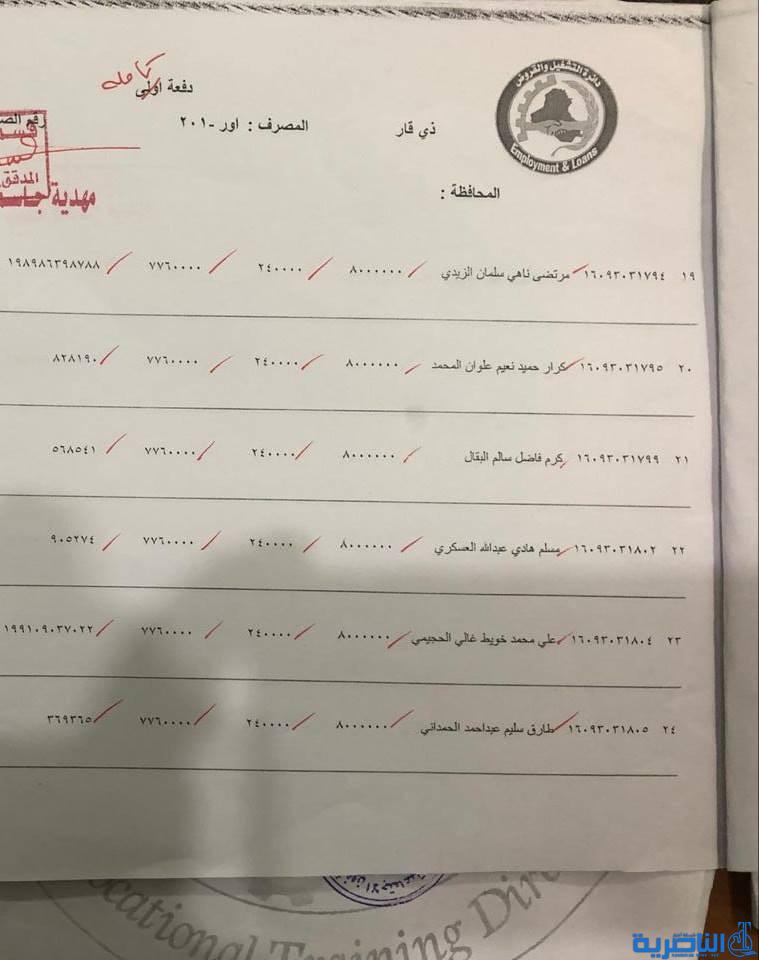 دائرة التشغيل والقروض
Employment & Loans
دفعة اولى
كامله
ذي قار
المصرف : اور -٢٠١
المحافظة :
المدقق
مهدية جاسم
١٩ ١٦٠٩٣٠٣١٧٩٤ مرتضى ناهي سلمان الزيدي ٨٠٠٠٠٠٠ ٢٤٠٠٠٠ ٧٧٦٠٠٠٠ ١٩٨٩٨٦٣٩٨٧٨٨
٢٠ ١٦٠٩٣٠٣١٧٩٥ كرار حميد نعيم علوان المحمد ٨٠٠٠٠٠٠ ٢٤٠٠٠٠ ٧٧٦٠٠٠٠ ٨٢٨١٩٠
٢١ ١٦٠٩٣٠٣١٧٩٩ كرم فاضل سالم البقال ٨٠٠٠٠٠٠ ٢٤٠٠٠٠ ٧٧٦٠٠٠٠ ٥٦٨٥٤١
٢٢ ١٦٠٩٣٠٣١٨٠٢ مسلم هادي عبدالله العسكري ٨٠٠٠٠٠٠ ٢٤٠٠٠٠ ٧٧٦٠٠٠٠ ٩٠٥٢٧٤
٢٣ ١٦٠٩٣٠٣١٨٠٤ علي محمد خويط غالي الحجيمي ٨٠٠٠٠٠٠ ٢٤٠٠٠٠ ٧٧٦٠٠٠٠ ١٩٩١٠٩٠٣٧٠٢٢
٢٤ ١٦٠٩٣٠٣١٨٠٥ طارق سليم عبداحمد الحمداني ٨٠٠٠٠٠٠ ٢٤٠٠٠٠ ٧٧٦٠٠٠٠ ٣٦٩٣٦٥
ocational Training Dir
الناصرية